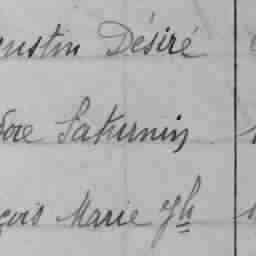 gustin Désiré
dore Saturnin
çois Marie Jh